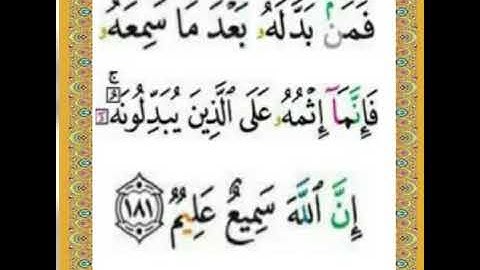 فَمَنۢ بَدَّلَهُۥ بَعْدَ مَا سَمِعَهُۥ
فَإِنَّمَآ إِثْمُهُۥ عَلَى ٱلَّذِينَ يُبَدِّلُونَهُۥٓ ۚ
إِنَّ ٱللَّهَ سَمِيعٌ عَلِيمٌ ١٨١